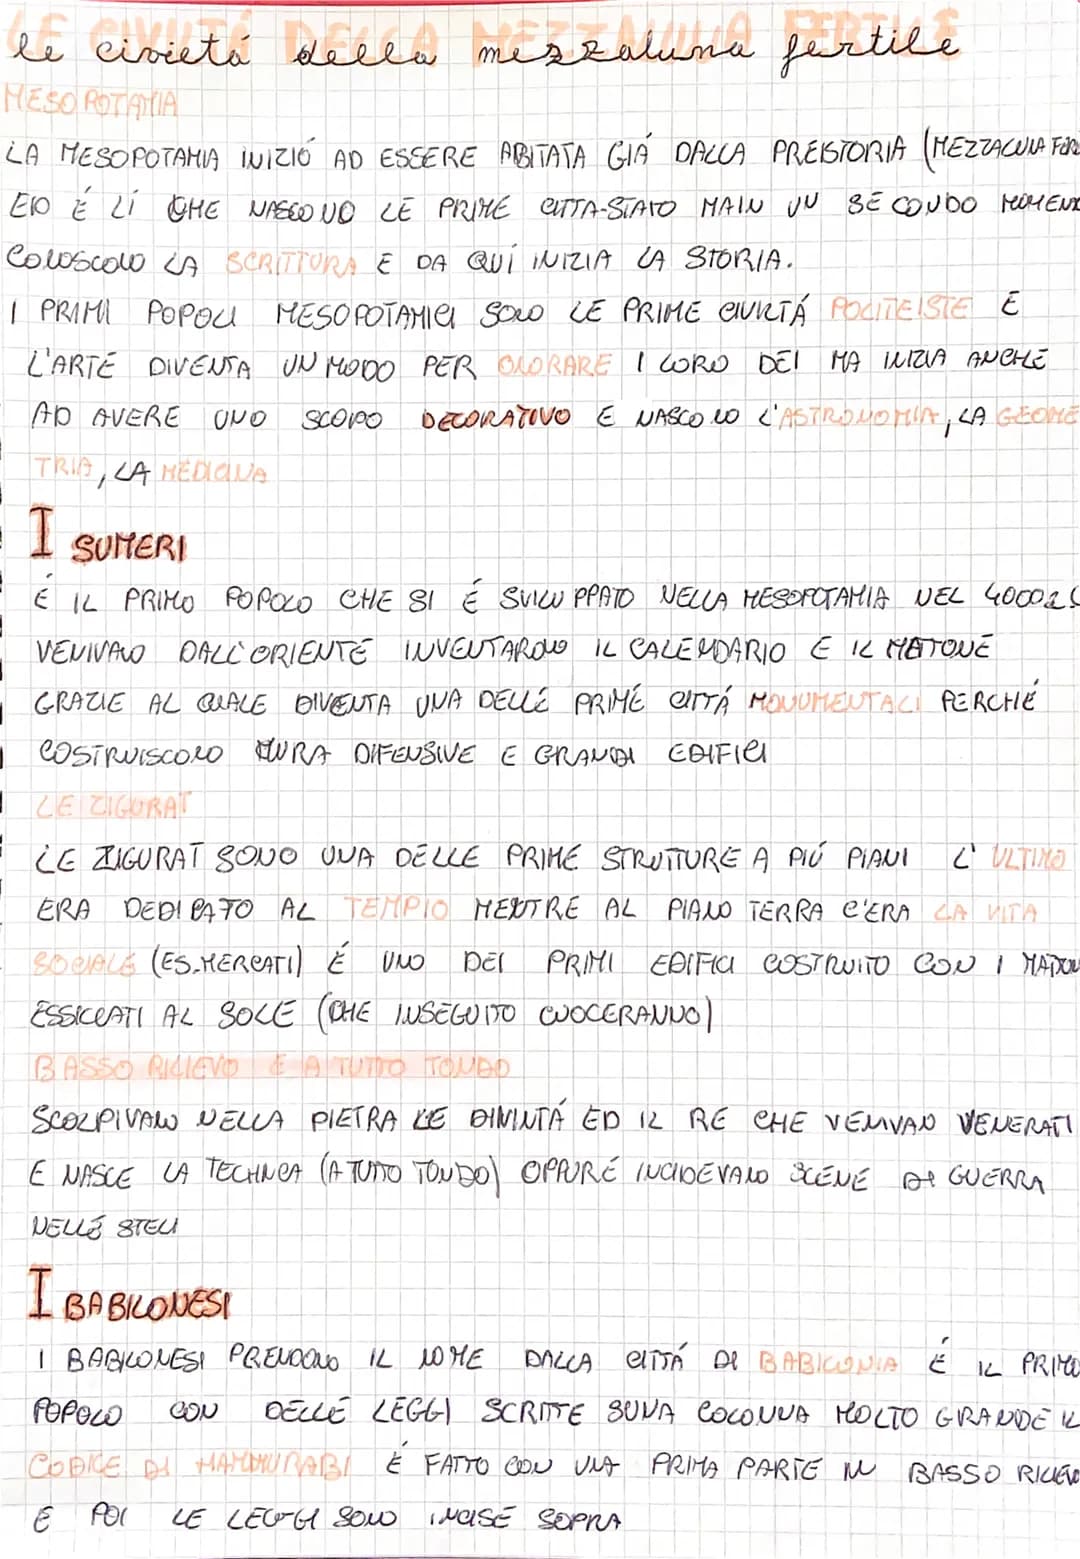 le civietá della mezzaluna fertile
MESOPOTAMIA
LA MESOPOTAMIA INIZIÓ AD ESSERE ABITATA GIÁ DALLA PREISTORIA (MEZZALUNA FER
ED É LÍ CHE NASCONO LE PRIME CITTA-STATO MA IN UN SECONDO MOMEN
CONOSCONO LA SCRITTURA E DA QUÍ INIZIA LA STORIA.
I PRIMI POPOLI MESOPOTAMICI SONO LE PRIME CIVILTÁ POLITEISTE E
L'ARTE DIVENTA UN MODO PER ONORARE I LORO DEI MA INIZIA ANCHE
AD AVERE UNO SCOPO DECORATIVO E NASCONO L'ASTRONOMIA, LA GEOME
TRIA, LA MEDICINA
I SUMERI
É IL PRIMO POPOLO CHE SI É SVILUPPATO NELLA MESOPOTAMIA NEL 4000
VENIVANO DALL'ORIENTE INVENTARONO IL CALENDARIO E IL MATONE
GRAZIE AL QUALE DIVENTA UNA DELLE PRIME CITTÁ MONUMENTALI PERCHÉ
COSTRUISCONO MURA DIFENSIVE E GRANDI EDIFICI
LE ZIGURAT
LE ZIGURAT SONO UNA DELLE PRIME STRUTTURE A PIÚ PIANI L'ULTIMO
ERA DEDICATO AL TEMPIO MENTRE AL PIANO TERRA C'ERA LA VITA
SOCIALE (ES.MERCATI) É UNO DEI PRIMI EDIFICI COSTRUITO CON I MATON
ESSICCATI AL SOLE (CHE INSEGUITO CUOCERANNO)
BASSO RILIEVO E A TUTTO TONDO
SCOLPIVANO NELLA PIETRA LE DIVINTÁ ED IL RE CHE VENIVAN VENERATI
E NASCE LA TECHNICA (A TUTTO TONDO) OPPURE INCIDEVANO SCENE DI GUERRA
NELLE STELI
I BABILONESI
I BABILONESI PRENDONO IL NOME DALLA CITTÁ DI BABILONIA É IL PRIMO
POPOLO CON DELLE LEGGI SCRITTE SU UNA COLONNA MOLTO GRANDE IL
CODICE DI HAMMURABI É FATTO CON UNA PRIMA PARTE IN BASSO RILIEVO
E POI LE LEGGI SONO INCISE SOPRA